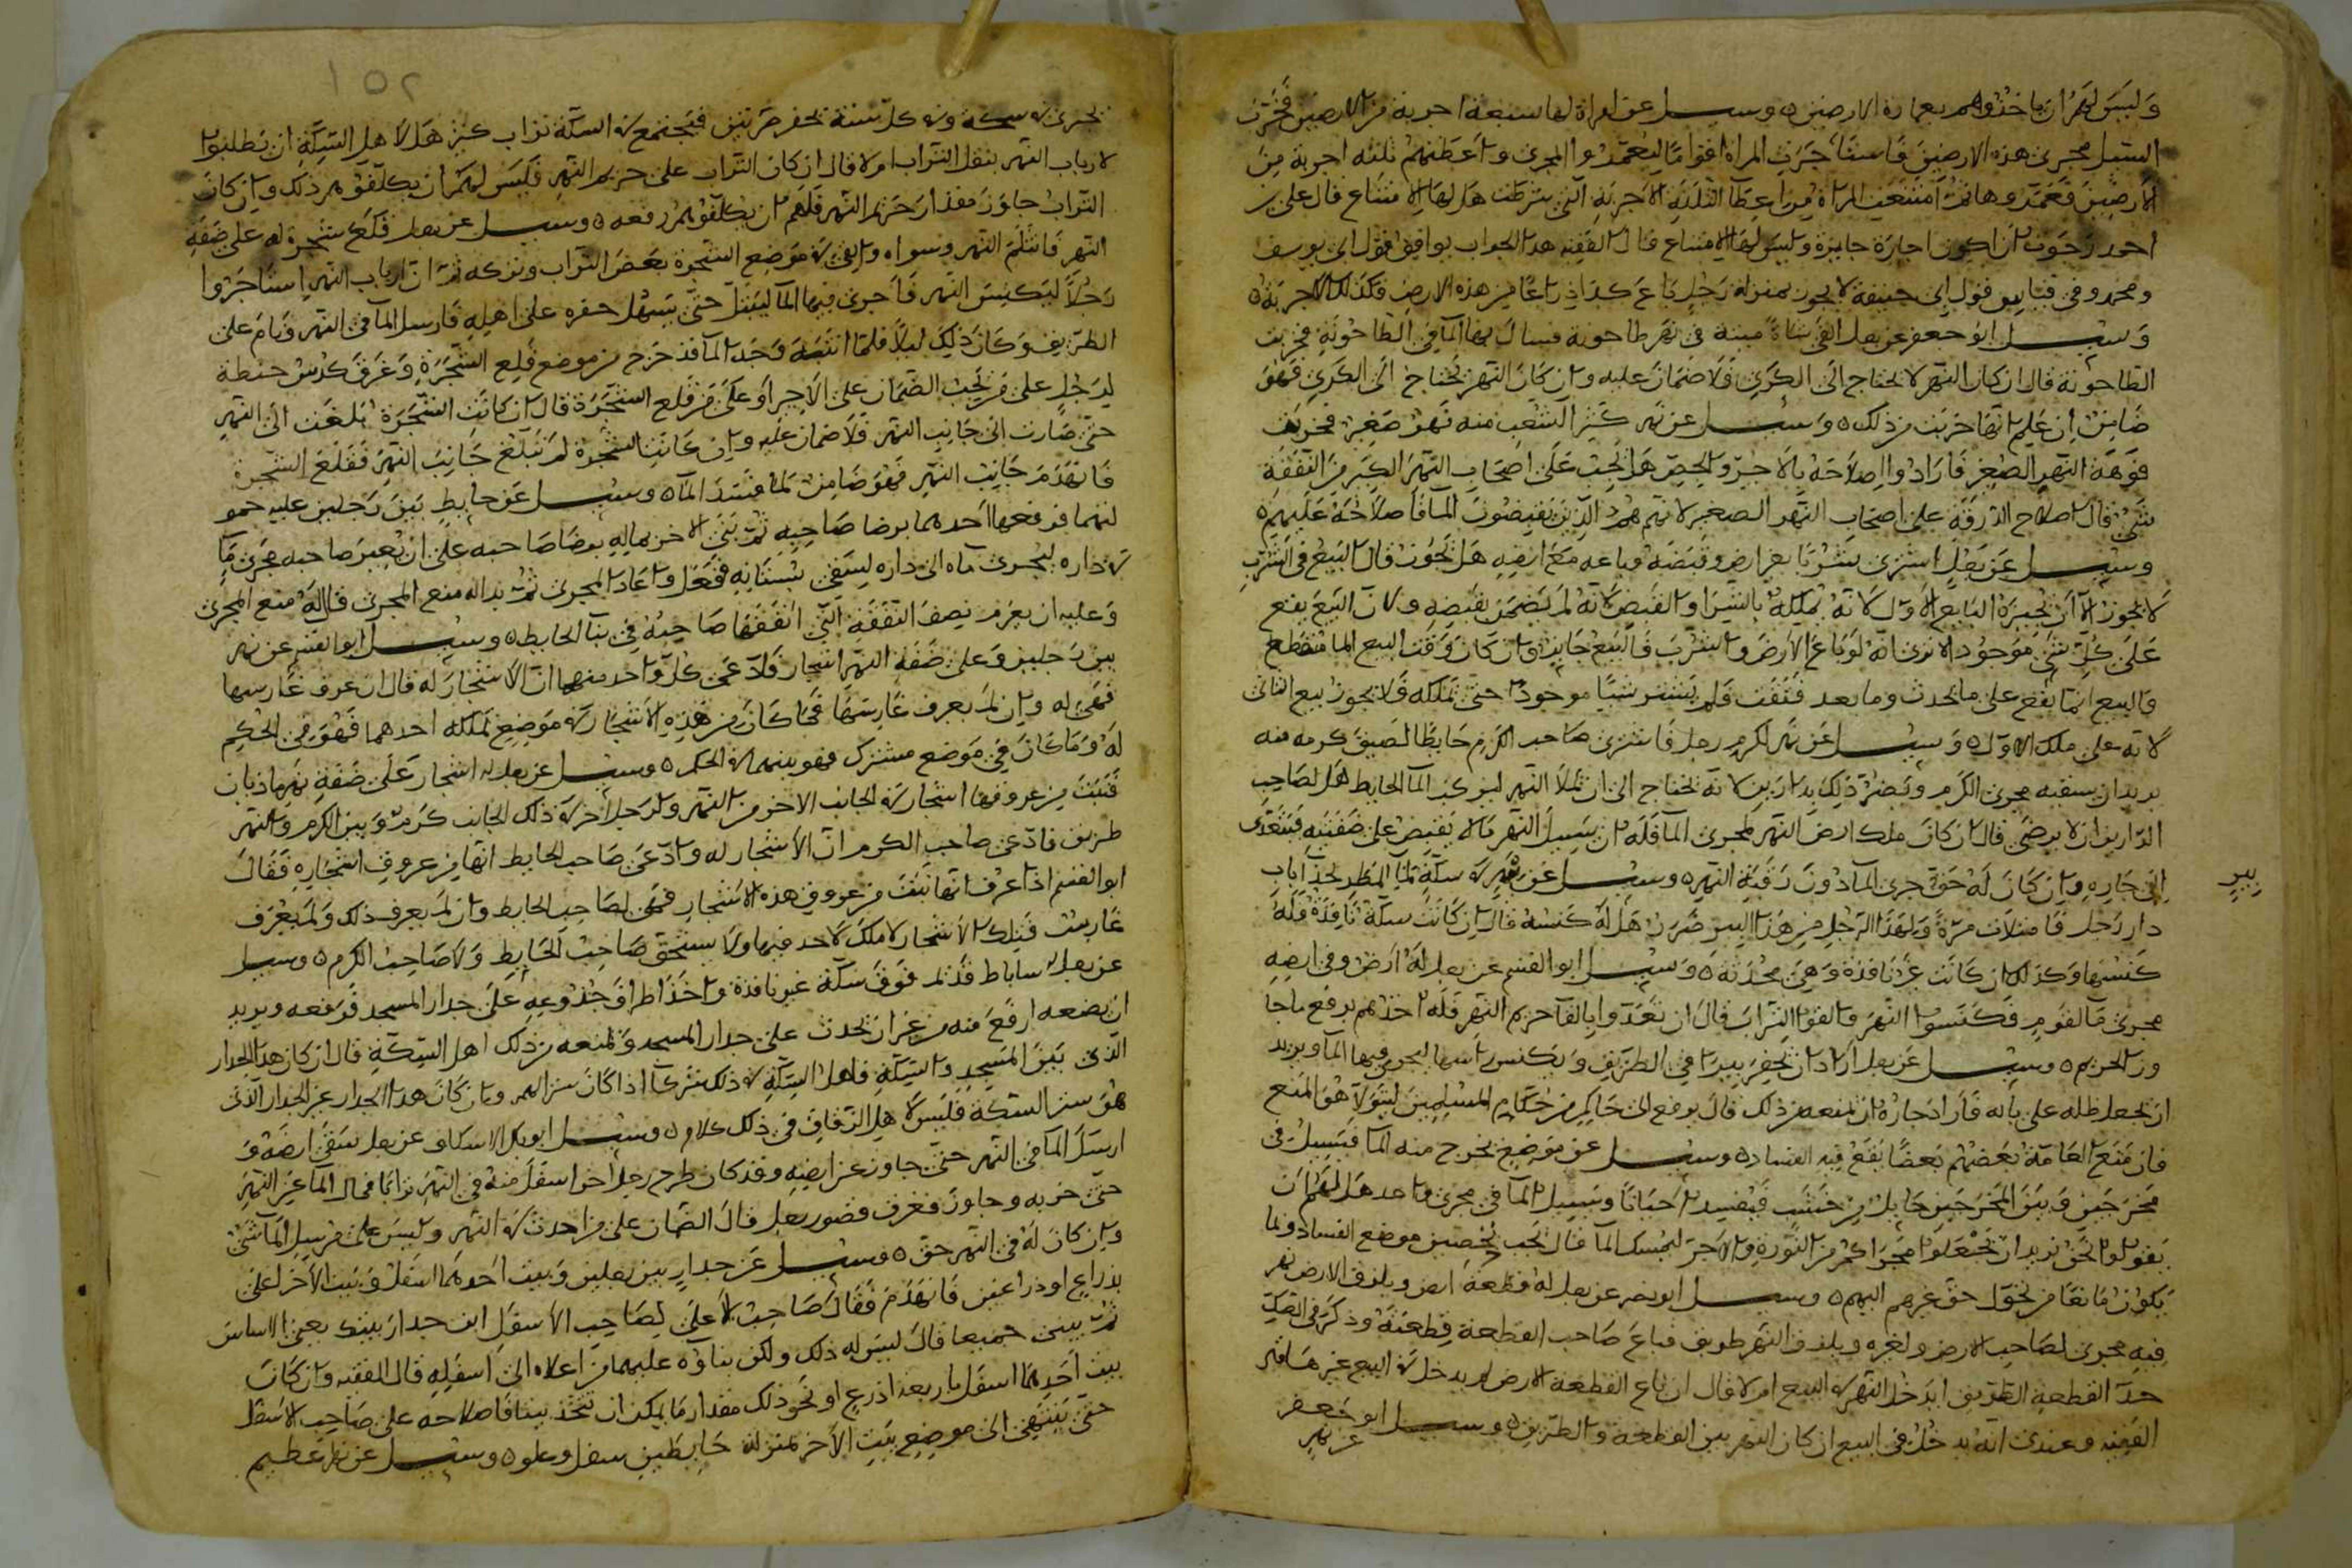 وليس لهم ان ياخذوهم بعمارة الارضين ٥ وسيل عن امراة لها سبعة اجربة من الارضين فخربت
السيل مجرى هذه الارضين فاستاجرت المراة اقواما ليعمروا المجرى واعطتهم ثلثة اجربة من
الارضين فعمروها ثم امتنعت المراة من اعطا الثلثة الاجربة التي شرطت هل لها الامتناع قال علي بن
احمد رجوت ان تكون اجارة جايزة وليس لها الامتناع قال الفقيه هذا الجواب يوافق قول ابي يوسف
ومحمد وفي قياس قول ابي حنيفة لا يجوز بمنزلة رجل باع كذا ذراعا من هذه الارض فكذلك الاجربة ٥
وسيل ابو جعفر عن رجل القى شاة ميتة في نهر طاحونة فسال بها الما في الطاحونة فخربت
الطاحونة قال ان كان النهر لا يحتاج الى الكري فلا ضمان عليه وان كان النهر يحتاج الى الكري فهو
ضامن ان علم انها خربت من ذلك ٥ وسيل عن نهر كبير انشعب منه نهر صغير فخربت
فوهة النهر الصغير فارادوا اصلاحه بالاجر والجص هل يجب على اصحاب النهر الكبير من النفقة
شي قال اصلاح على اصحاب النهر الصغير لانهم هم الذين يفيضون الما فاصلاحه عليهم ٥
وسيل عن رجل اشترى شربا بغير ارض وقبضه وباعه مع ارضه هل يجوز قال البيع في الشرب
لا يجوز الا ان يجيزه البايع الاول لانه لم يملكه بالشرا والقبض لانه لم يضمن بقبضه ولان البيع يقع
على كل شي موجود الا ترى انه لو باع الارض والشرب فالبيع جايز وان كان وقت البيع الما منقطع
فالبيع انما يقع على ما يحدث وما بعد فلم يشتر شيا موجودا حتى تملكه فلا يجوز بيع الثاني
لانه على ملك الاول ٥ وسيل عن نهر لكرم رجل فاشترى صاحب الكرم حايطا لصيق كرمه منه
يريد ان يسقيه مجرى الكرم ويضر ذلك بدارين لانه يحتاج الى ان تملا النهر الما الحايط هل لصاحب
الدارين ان لا يرضى قال ان كان ملك ارض النهر لمجرى الما فله ان يسيل النهر ما لا يفيض على ضفتيه فيتعدى
الى جاره وان كان له حق جرى الما دون رقبة النهر ٥ وسيل عن بير في سكة تملا المطر لحذا باب
دار رجل فامتلات مرة ولهذا الرجل من هذا البير ضرر هل له كبسه قال ان كانت سكة نافذة فله
كبسها وكذلك ان كانت غير نافذة وهي محدثة ٥ وسيل ابو القسم عن رجل له ارض وفي ارضه
مجرى ما لقوم فكنسوا النهر والقوا التراب قال ان تعدوا بالقا حريم النهر فله اخذهم برفع ما جا
وز الحريم ٥ وسيل عن رجل اراد ان يحفر بيرا في الطريق ويكنس راسها ليجري فيها الما ويريد
ان يجعل ظله على بابه فاراد جاره ان يمنعه من ذلك قال يرفع الى حاكم من حكام المسلمين ليتولا هو المنع
فان منع العامة بعضهم بعضا يقع فيه الفساد ٥ وسيل عن موضع يخرج منه الما فيسيل في
مخرجين وبين المخرجين حايل من خشب فيفسد احيانا ويسيل الما في مجرى واحد هل لهم ان
يقولوا نحن نريد ان نجعلوا مجراكم من النورة والاجر ليمسك الما قال يجب تحصين موضع الفساد ولما
يكون مانعا من تحول حق غيرهم اليهم ٥ وسيل ابو نصر عن رجل له قطعة ارض ويلزق الارض نهر
فيه مجرى لصاحب الارض ولغيره ويلزق النهر طريق فباع صاحب القطعة قطعته وذكر في الصك
حد القطعة الطريق ايدخل النهر في البيع ام لا قال ان باع القطعة الارض لم يدخل في البيع غير ما
الفقيه وعندي انه يدخل في البيع ان كان النهر بين القطعة والطريق ٥ وسيل ابو جعفر
عن نهر
بير
٢٥١
يجرى في سكة وفي كل سنة يحفر مرتين فيجتمع في السكة تراب كثير هل لاهل السكة ان يطلبوا
لارباب النهر بنقل التراب ام لا قال ان كان التراب على حريم النهر فليس لهم ان يكلفوهم ذلك وان كان
التراب جاوز مقدار حريم النهر فلهم ان يكلفوهم رفعه ٥ وسيل عن رجل قلع شجرة له على ضفة
النهر فانثلم النهر وسواه والقى في موضع الشجرة بعض التراب وتركه ثم ان ارباب النهر استاجروا
رجلا ليكنس النهر فاجرى فيها الما ليبتل حتى يسهل حفره على اهله فارسل الما في النهر ونام على
الطريق وكان ذلك ليلا فلما انتبه وجد الما قد خرج من موضع قلع الشجرة وغرق كدس حنطة
لرجل على من يجب الضمان على الاجير او على من قلع الشجرة قال ان كانت الشجرة بلغت الى النهر
حتى صارت الى جانب النهر فلا ضمان عليه وان كانت الشجرة لم تبلغ جانب النهر فقلع الشجرة
فانهدم جانب النهر فهو ضامن لما فسد الما ٥ وسيل عن حايط بين رجلين عليه حمو
لتهما فرفعها احدهما برضا صاحبه ثم بنى الاخر بماله برضا صاحبه على ان يعير صاحبه مجرى ما
في داره ليجري ماه الى داره ليسقي بستانه ففعل واعاد المجرى ثم بدا له منع المجرى قال له منع المجرى
وعليه ان يغرم نصف النفقة التي انفقها صاحبه في بنا الحايط ٥ وسيل ابو القسم عن نهر
بين رجلين وعلى ضفة النهر اشجار فادعى كل واحد منهما ان الاشجار له قال ان عرف غارسها
فهي له وان لم يعرف غارسها فما كان من هذه الاشجار في موضع تملكه احدهما فهو في الحكم
له وما كان في موضع مشترك فهو بينهما في الحكم ٥ وسيل عن رجل له اشجار على ضفة نهر ماذيان
فنبت من عروقها اشجار في الجانب الاخر من النهر ولرجل اخر في ذلك الجانب كرم وبين الكرم والنهر
طريق فادعى صاحب الكرم ان الاشجار له وادعى صاحب الحايط انها من عروق اشجاره فقال
ابو القسم اذا عرف انها نبتت من عروق هذه الاشجار فهي لصاحب الحايط وان لم يعرف ذلك ولم يعرف
غارس فتلك الاشجار لا ملك لاحد فيها ولا يستحق صاحب الحايط ولا صاحب الكرم ٥ وسيل
عن رجل له ساباط قديم فوق سكة غير نافذة واخذ اطراف جذوعه على جدار المسجد فرفعه ويريد
ان يضعه ارفع منه من غير ان يحدث على جدار المسجد ويمنعه من ذلك اهل السكة قال ان كان هذا الجدار
الذي بين المسجد والسكة فاهل السكة في ذلك شركا اذا كان ستر لهم وان كان هذا الجدار غير الجدار الذي
هو ستر السكة فليس لاهل الزقاق في ذلك كلام ٥ وسيل ابو بكر الاسكاف عن رجل سقى ارضه و
ارسل الما في النهر حتى جاوز عن ارضه وقد كان طرح رجل اخر اسفل منه في النهر ترابا فمال الما عن النهر
حتى خربه وجاوز فغرق قصور رجل قال الضمان على من احدث في النهر وليس على مرسل الما شي
وان كان له في النهر حق ٥ وسيل عن جدار بين رجلين وبيت احدهما اسفل وبيت الاخر اعلى
بذراع او ذراعين فانهدم فقال صاحب الاعلى لصاحب الاسفل ابن جدار بيتك يعني الاساس
ثم نبني جميعا قال ليس له ذلك ولكن بناوه عليهما من اعلاه الى اسفله قال الفقيه وان كان
بيت احدهما اسفل باربعة اذرع او نحو ذلك مقدار ما يمكن ان تتخذ بيتا فاصلاحه على صاحب الاسفل
حتى ينتهي الى موضع بيت الاخر بمنزلة حايطين سفل وعلو ٥ وسيل عن نهر عظيم